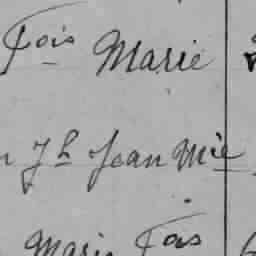 Fois Marie
Jh Jean Mie
Marie Fois